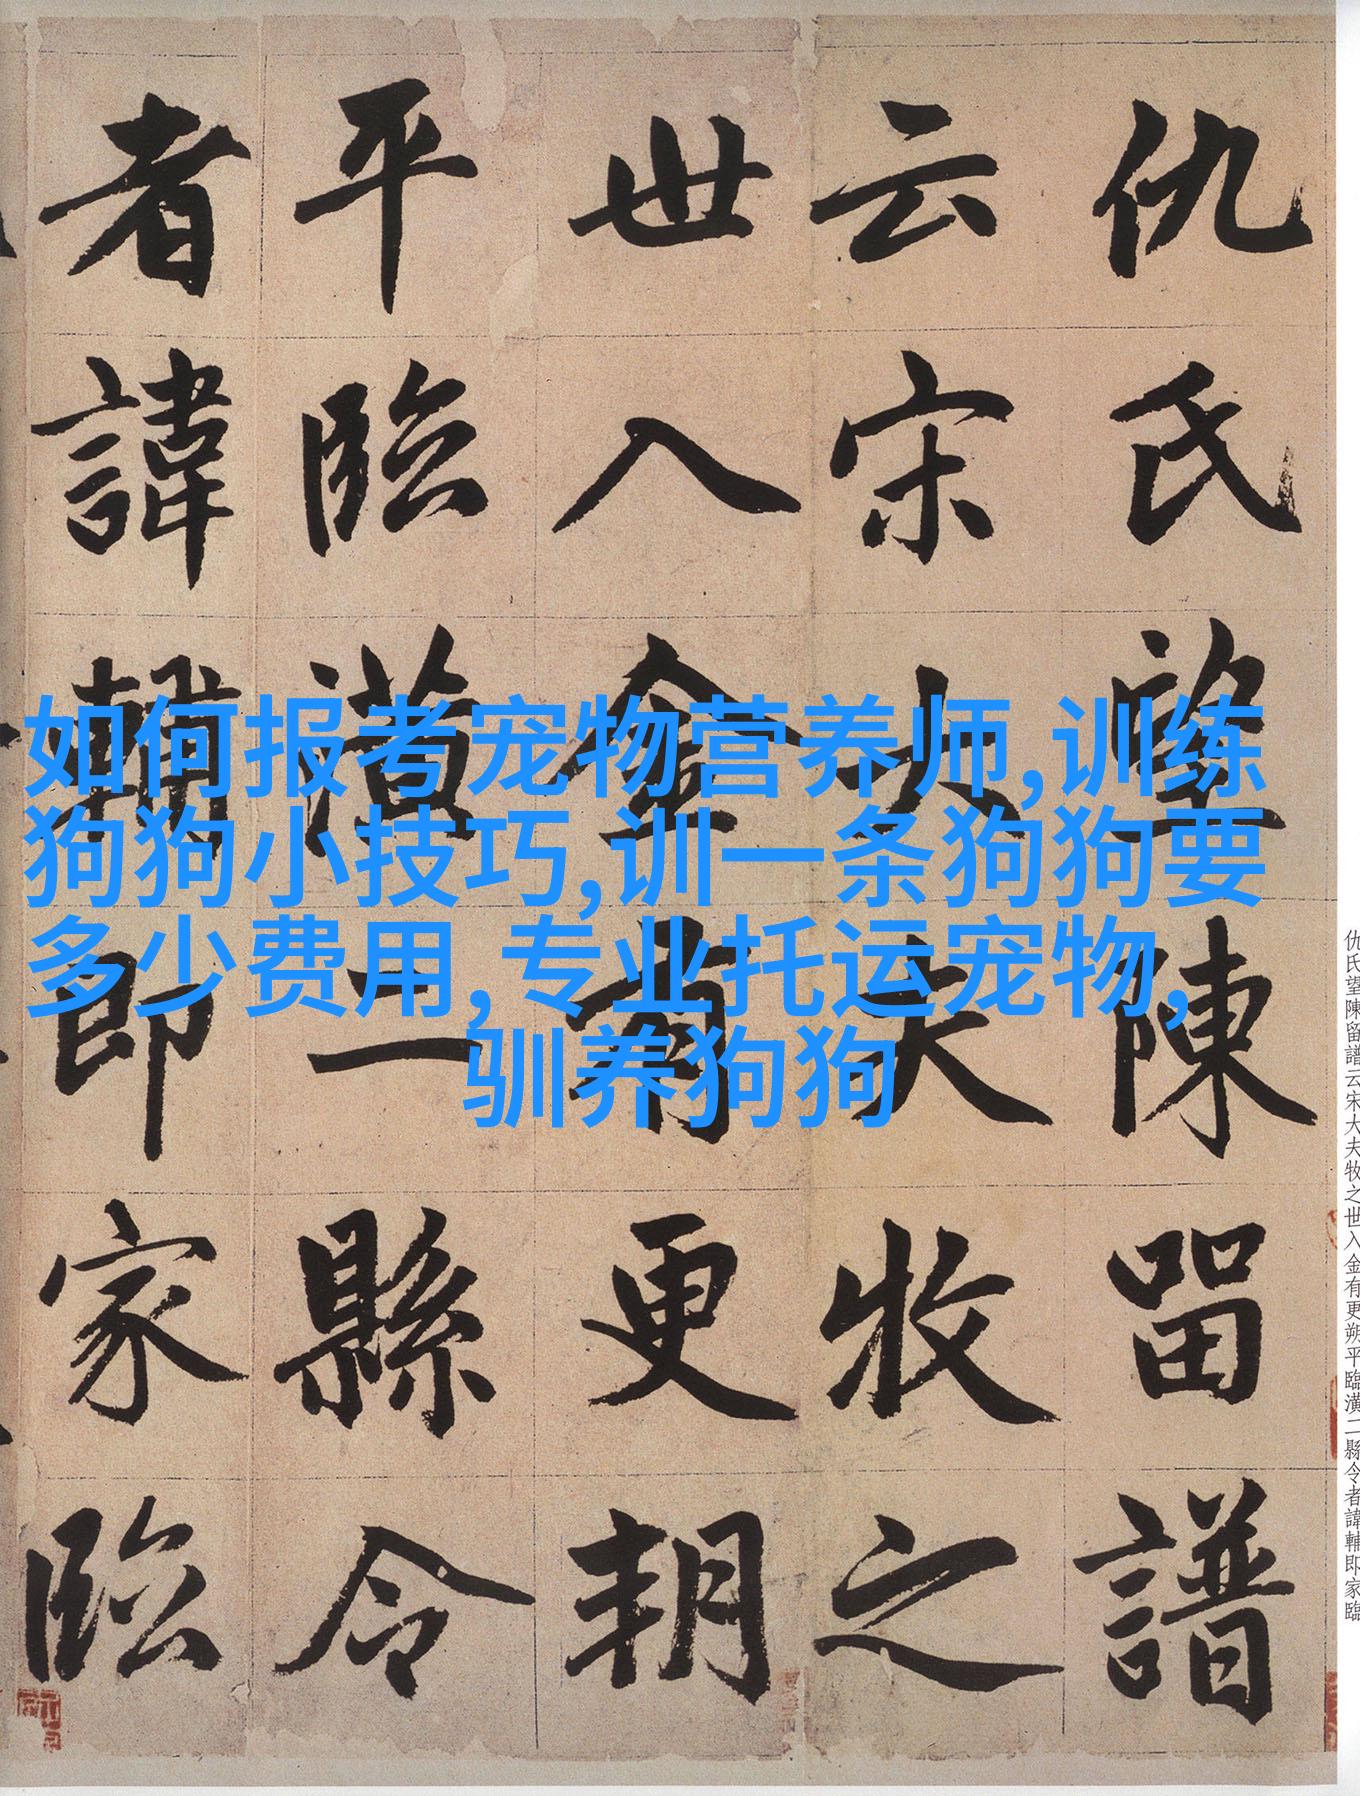 如何报考宠物营养师,训练
狗狗小技巧,训一条狗狗要
多少费用,专业托运宠物,
驯养狗狗
仇氏望陳留譜
云宋大夫牧之
世入金有更朔
平臨潢二縣令
者諱輔即家臨
仇氏望陳留譜云宋大夫牧之世入金有更朔平臨潢二縣令者諱輔即家臨